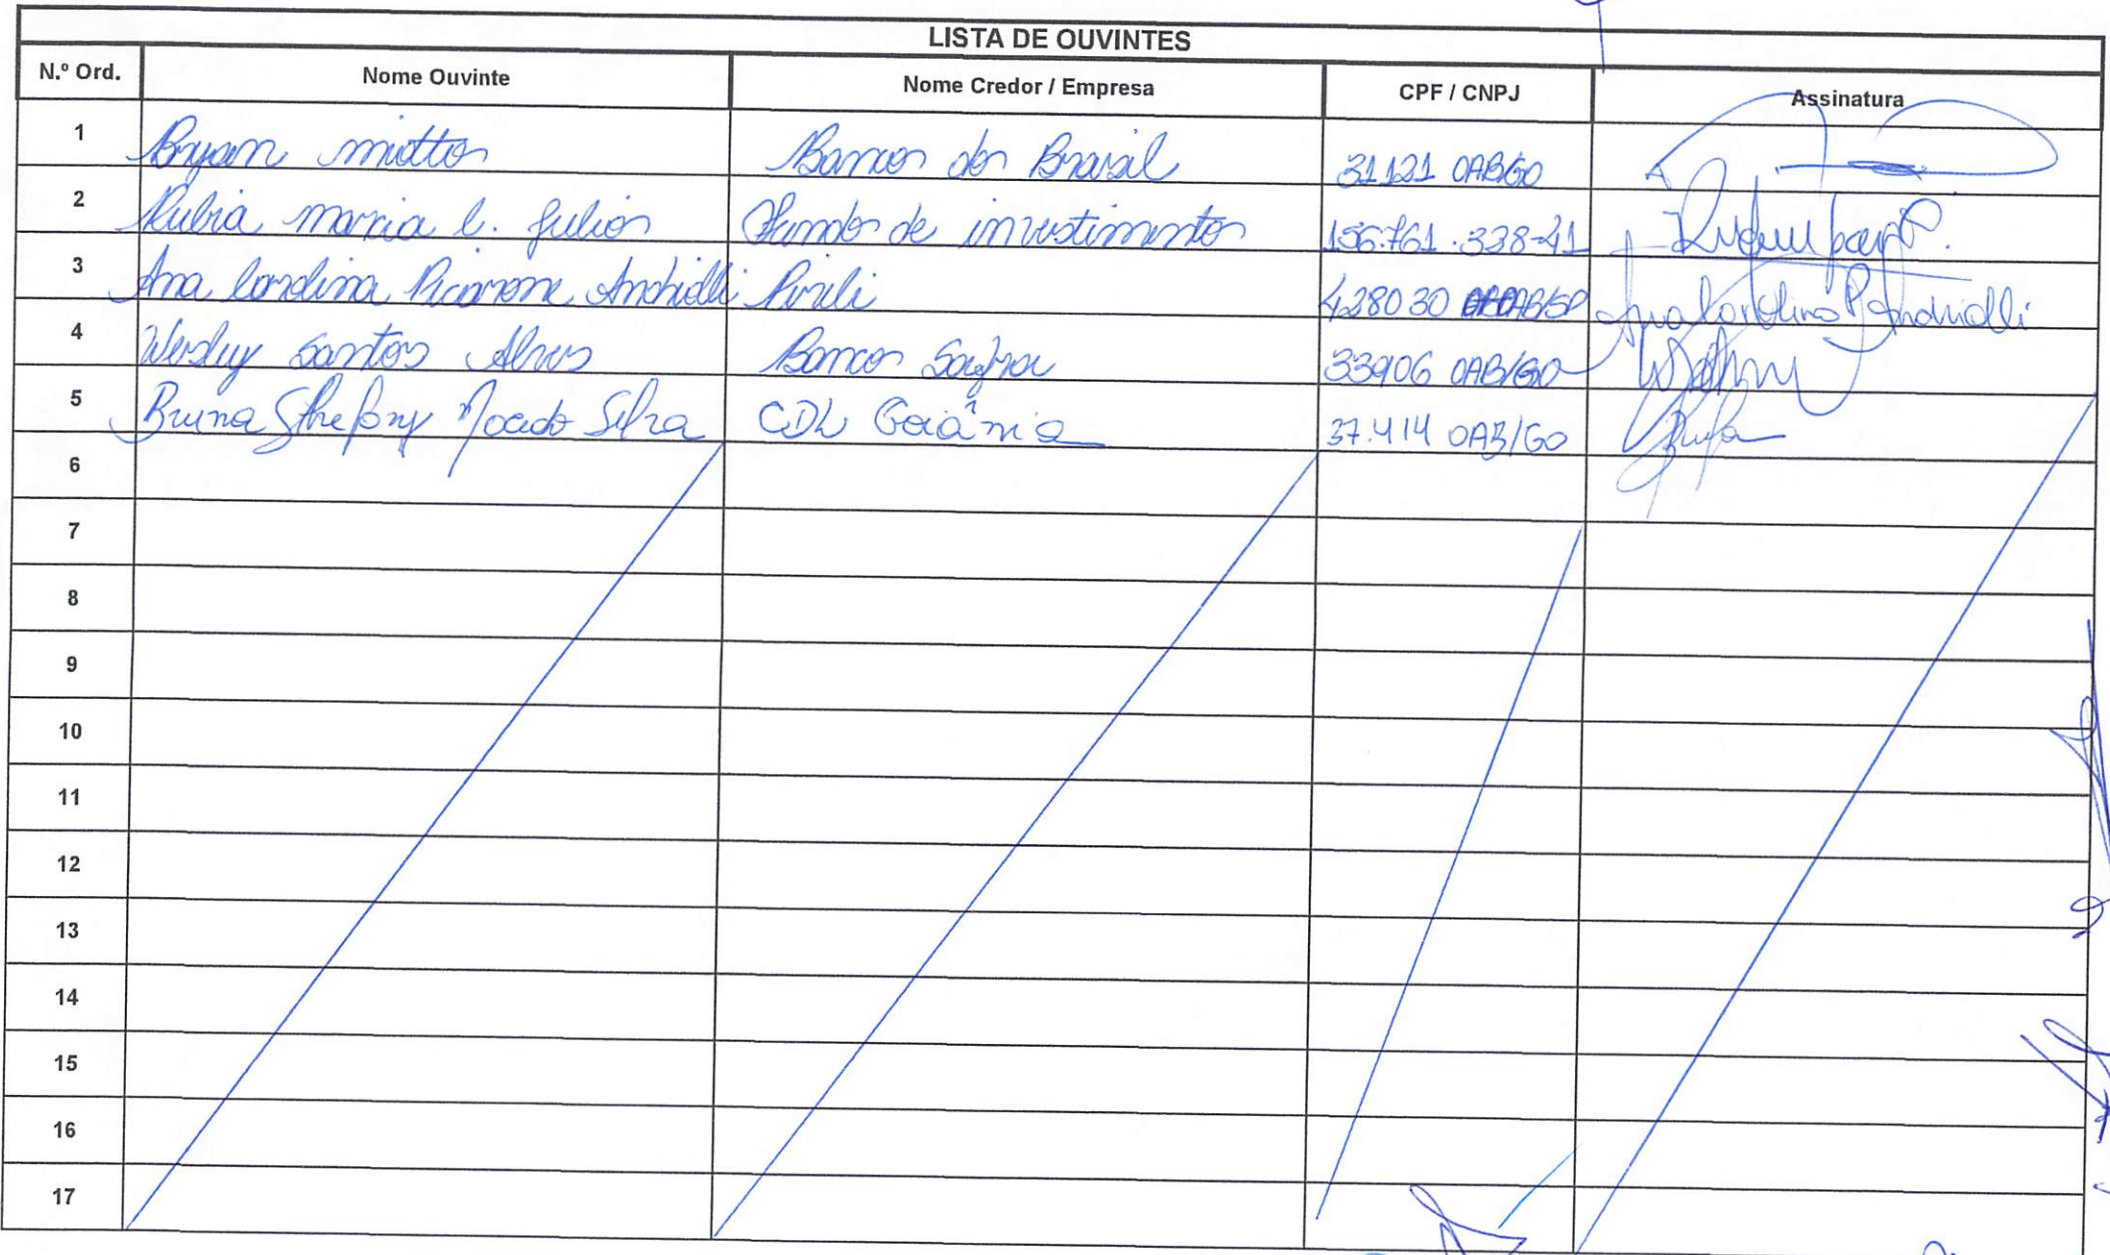 LISTA DE OUVINTES
N.º Ord. Nome Ouvinte Nome Credor / Empresa CPF / CNPJ Assinatura
1 Bryan miotto Banco do Brasil 31121 OAB/GO
2 Rubia maria C. Julior Fundo de investimento 156.761.338-41
3 Ana Carolina Andrielli Pirili 428030 OAB/SP Ana Carolina P. Andrielli
4 Wesley Santos Alves Banco Safra 33906 OAB/GO
5 Bruna Sthefany Macedo Silva CDL Goiânia 37.414 OAB/GO
6
7
8
9
10
11
12
13
14
15
16
17